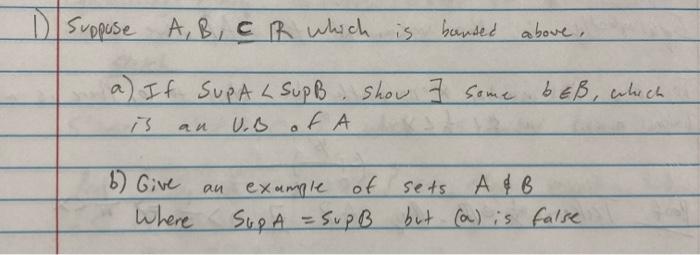 1) Suppose A, B, ⊆ ℝ which is bounded above.
a) If SupA < SupB. Show ∃ some b ∈ B, which
is an U.B of A
b) Give an example of sets A & B
Where SupA = SupB but (a) is false